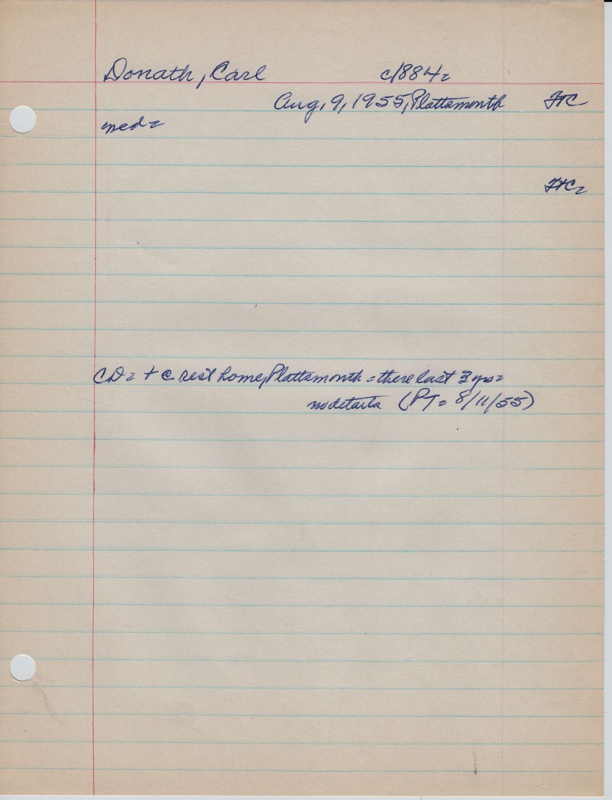 Donath, Carl c/884=
Aug. 9, 1955, Plattsmouth HC
ned=
HC=
CD= + @ rest home, Plattsmouth = there last 3 yrs=
no details (PT= 8/11/55)